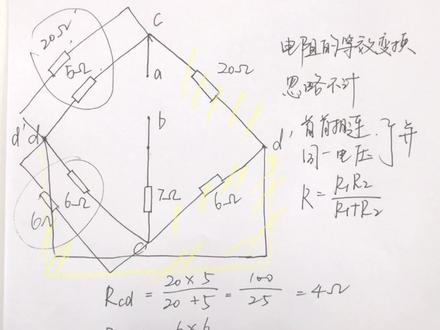 C
20Ω
5Ω
a
20Ω
b
d'
d
d'
6Ω
6Ω
7Ω
6Ω
电阻的等效变换
忽略不计
首首相连
同一电压
}并
R = R₁R₂ / R₁+R₂
Rcd = 20×5 / 20+5 = 100 / 25 = 4Ω
6×6